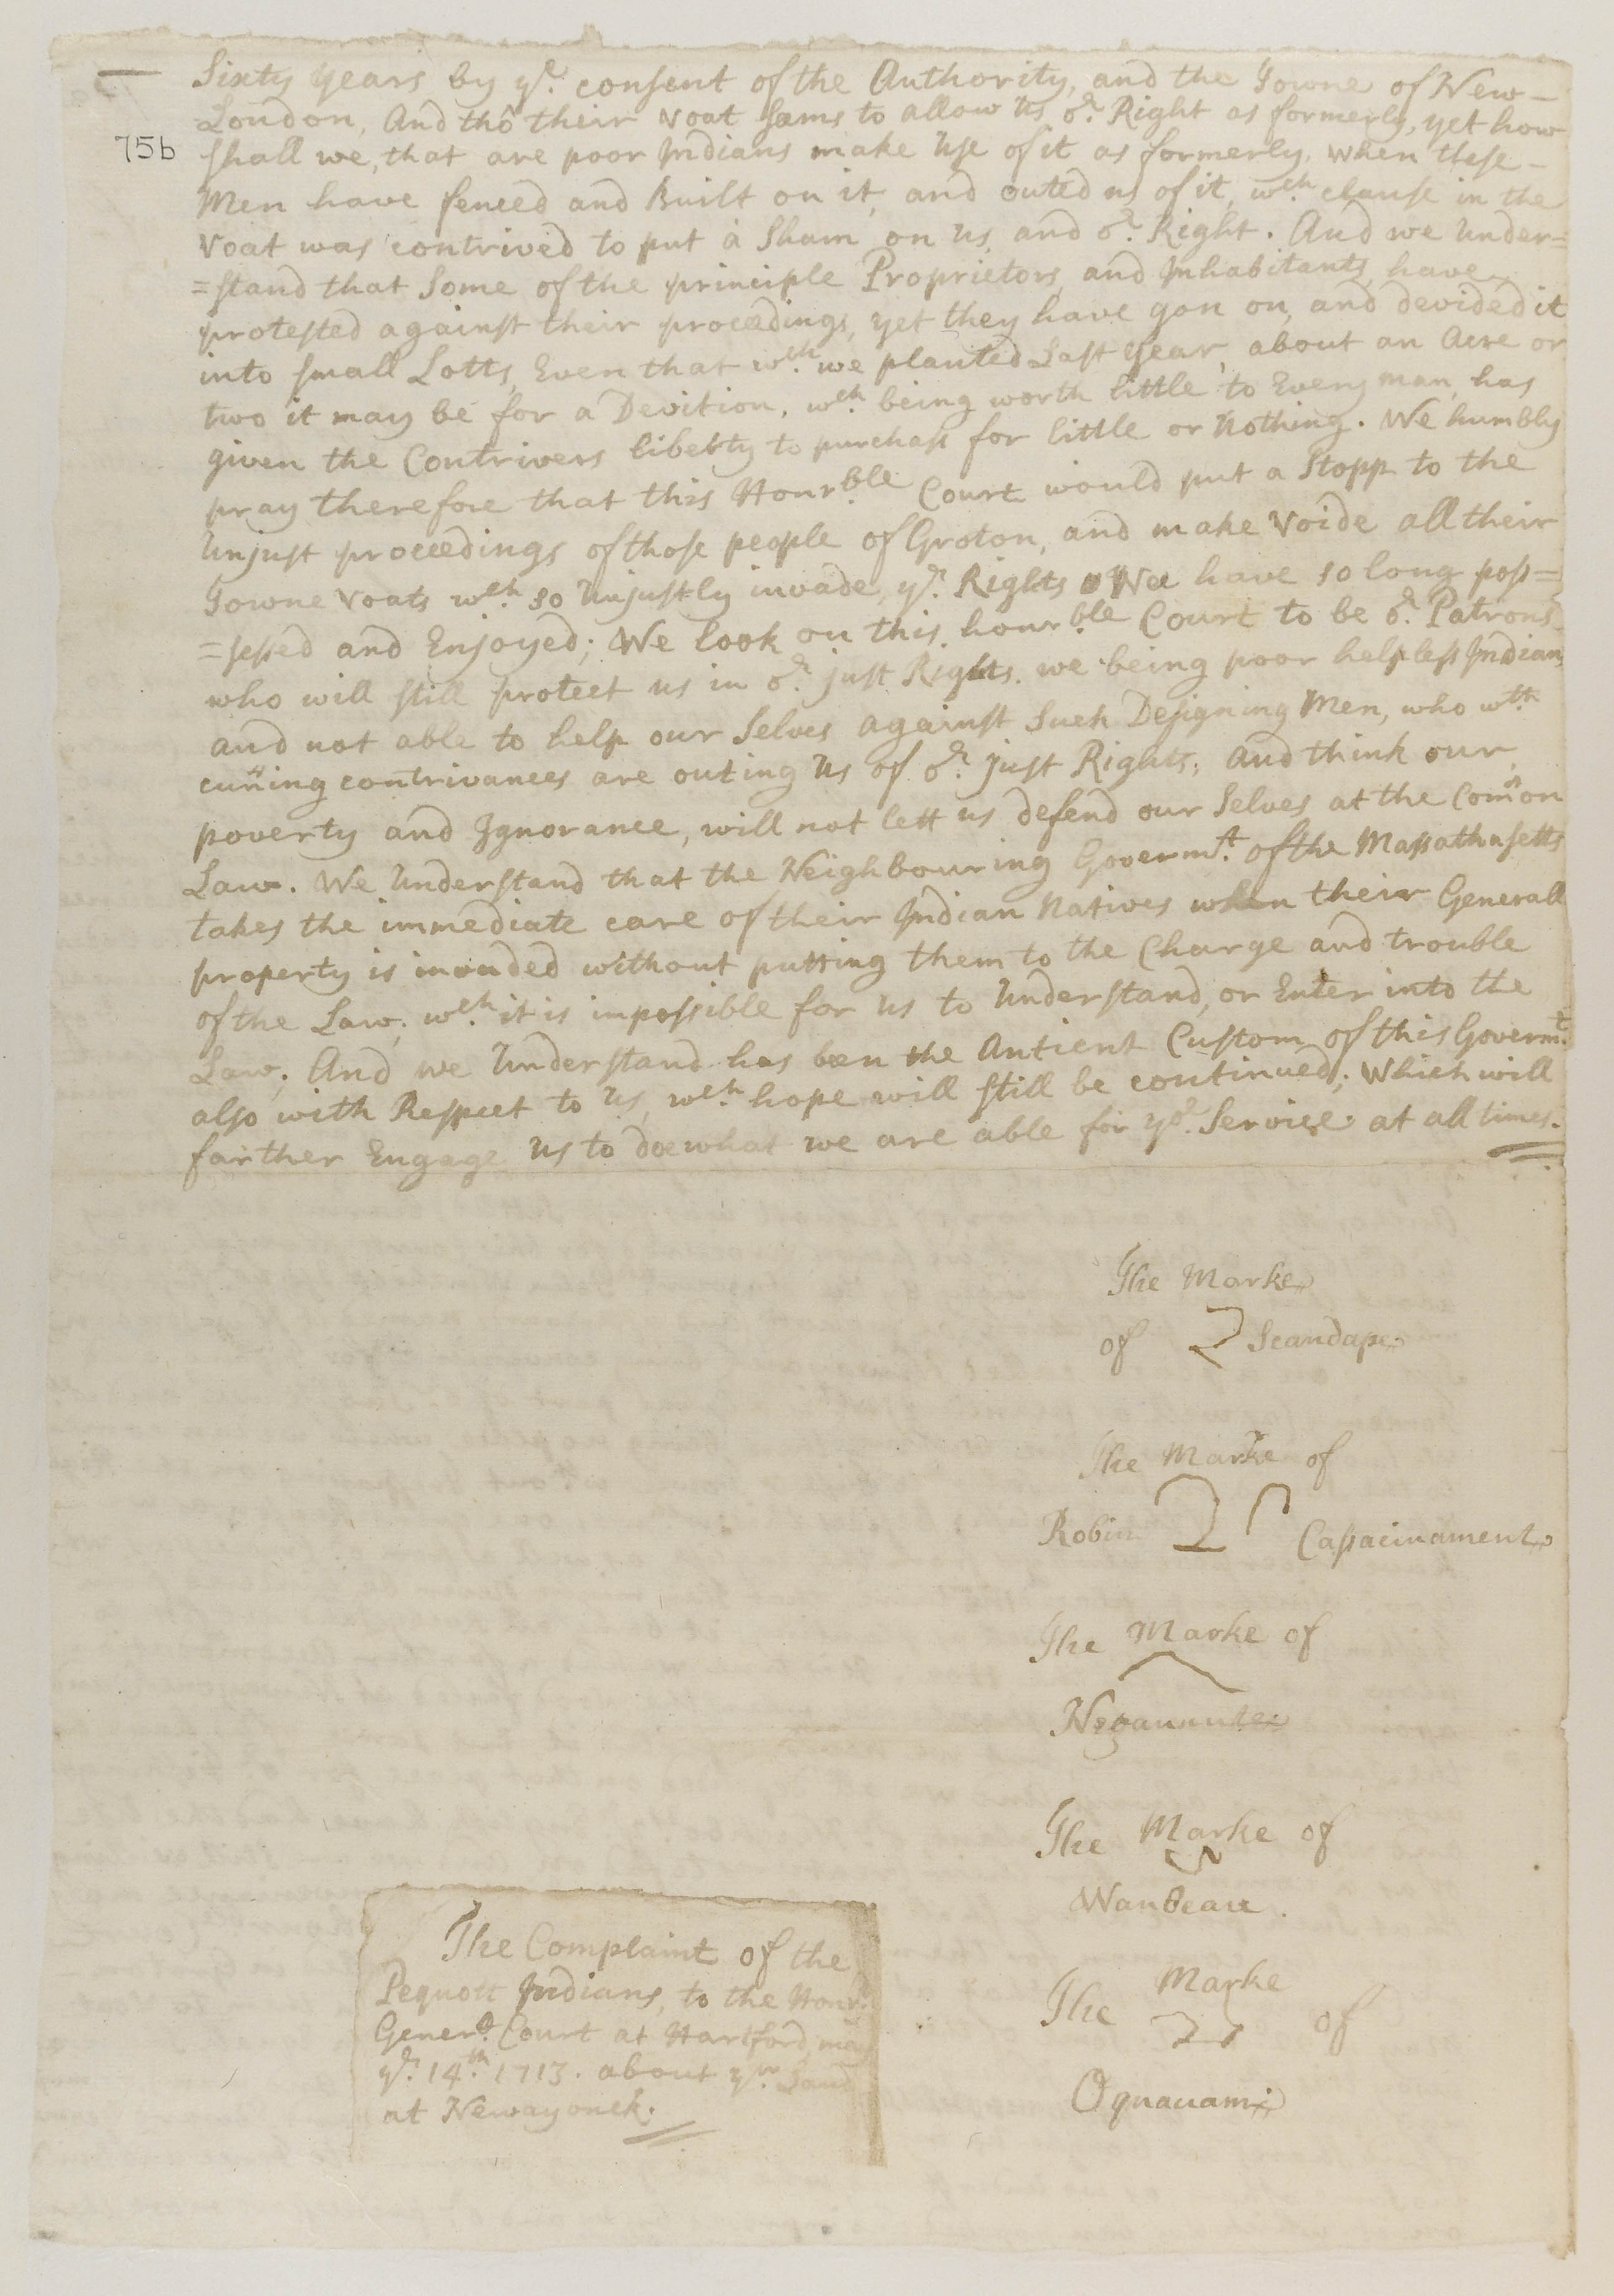 Sixty years by yᵉ. consent of the Authority, and the Towne of New-
London, And thô their voat seems to allow us oʳ. Right as formerly, yet how
75b
shall we, that are poor Indians make use of it as formerly, when these-
Men have fenced and Built on it, and outed us of it, wᶜʰ. clause in the
Voat was contrived to put a Sham on us, and oʳ. Right. And we under=
=stand that Some of the principle Proprietors, and Inhabitants, have
protested against their proceedings, yet they have gon on, and devided it
into small Lotts, Even that wᶜʰ. we planted Last year, about an Acre or
two it may be for a Devition, wᶜʰ. being worth little to Every man, has
given the Contrivers liberty to purchass for little or Nothing. We humbly
pray therefore that this Honrᵇˡᵉ Court would put a Stopp to the
unjust proceedings of those people of Groton, and make voide all their
Towne voats wᶜʰ. so unjustly invade, yᵉ. Rights Wee have so long poss=
=sessed and Enjoyed; We look on this honrᵇˡᵉ Court to be oʳ. Patrons
who will still protect us in oʳ. just Rights. we being poor helpless Indians
and not able to help our Selves against Such Designing Men, who wᵗʰ.
cuñing contrivances are outing us of oʳ. just Rights, And think our
poverty and Ignorance, will not lett us defend our Selves at the Com̃on
Law. We understand that the Neighbouring Govermᵗ. of the Massathusetts
takes the immediate care of their Indian Natives when their Generall
property is invaded without putting them to the Charge and trouble
of the Law, wᶜʰ. it is impossible for us to understand, or Enter into the
Law, And we understand has been the Antient Custom of this Govermᵗ.
also with Respect to us, wᶜʰ. hope will still be continued; Which will
farther Engage us to doe what we are able for yoʳ. Service at all times.
The Marke
of Scandape
The Marke of
Robin Cassacinament
The Marke of
The Marke of
The Marke of
The Complaint of the
Pequott Indians, to the Honr.
Generˡˡ. Court at Hartford, may
yᵉ. 14ᵗʰ. 1713. about yʳ. Land
at Newayonck.